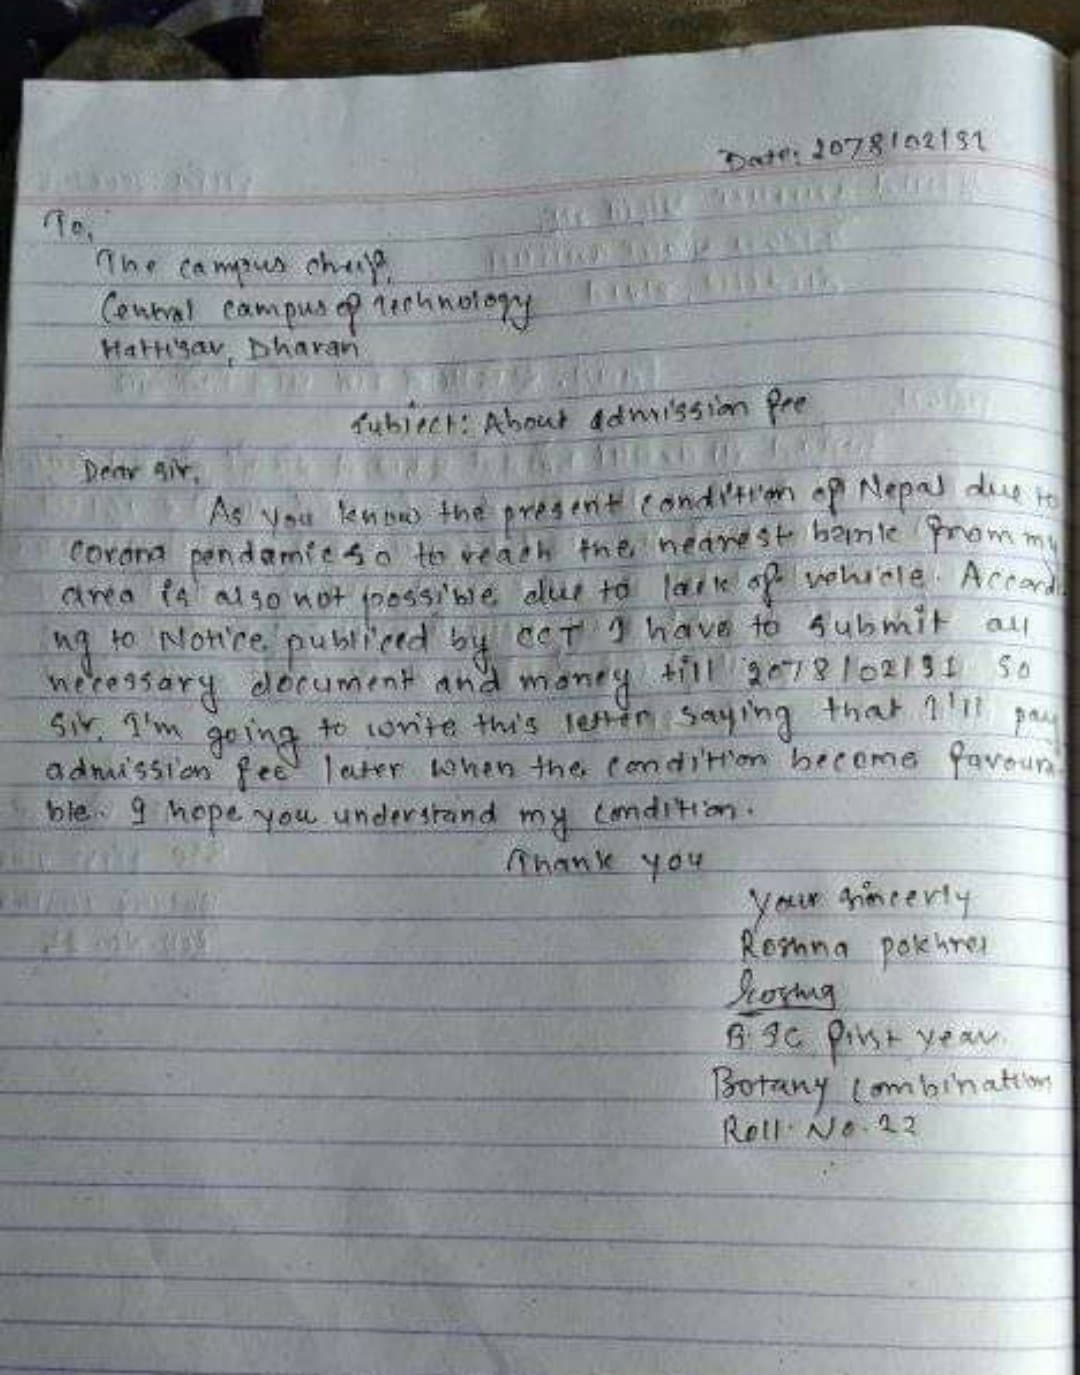 Date: 2078/02/31
To,
The campus cheif,
Central campus of Technology
Hattisar, Dharan
Subject: About admission fee
Dear sir,
As you know the present condition of Nepal due to
corona pendamic so to reach the nearest bank from my
area is also not possible due to lack of vehicle. Accordi
ng to Notice publiced by CCT I have to submit all
necessary document and money till 2078/02/31 so
sir, I'm going to write this letter saying that I'll pay
admission fee later when the condition become favoura
ble. I hope you understand my condition.
Thank you
Your sincerly
Roshna pokhrel
B.SC first year
Botany combination
Roll. No. 22